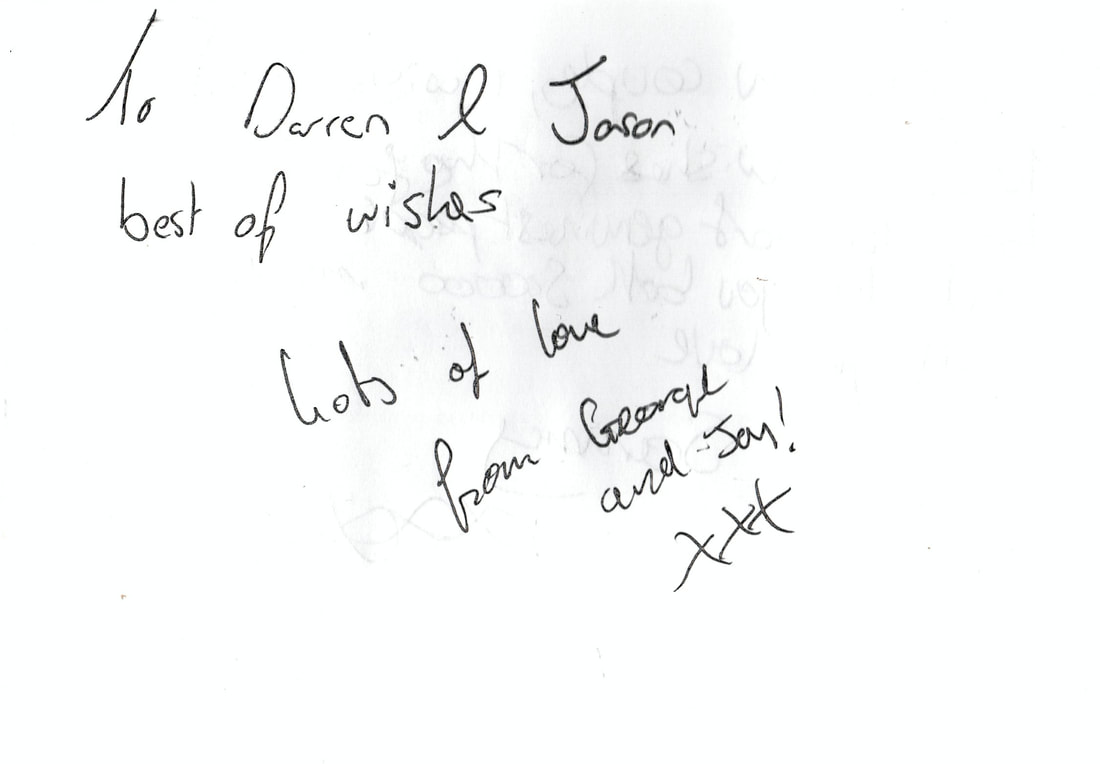 To Darren & Jason
best of wishes
Lots of love
from George
and Jay!
xxx